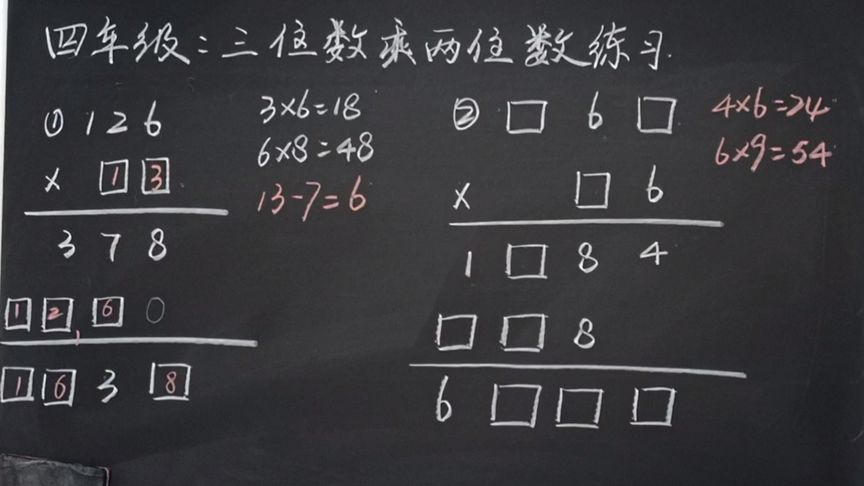 四年级：三位数乘两位数练习
① 1 2 6
× 1 3
3 7 8
1 2 6 0
1
1 6 3 8
3×6=18
6×8=48
13-7=6
② □ 6 □
× □ 6
1 □ 8 4
□ □ 8
6 □ □ □
4×6=24
6×9=54